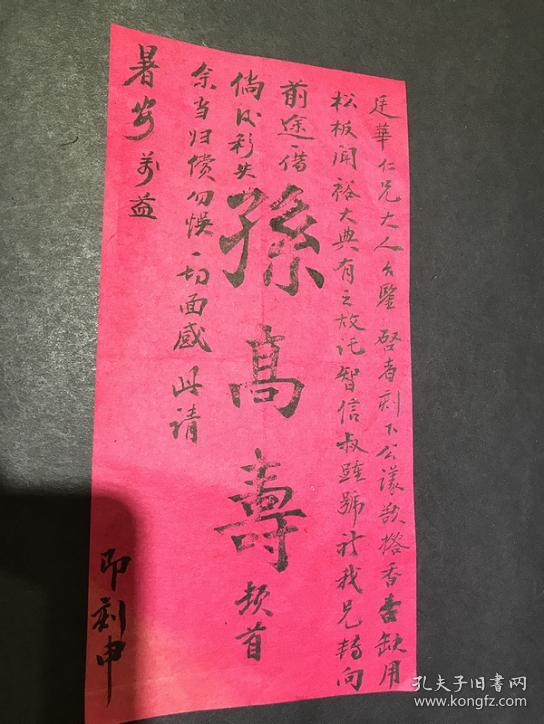 廷華仁兄大人台鑒啓者刻下公議敬搭香耆缺用
松板聞裕大典有之故託智信叔踵號祈我兄轉向
前途一借
倘以彩失
余当归償勿悮一切面感此请
暑安 并益
孫高壽
頓首
即刻申
孔夫子旧书网
www.kongfz.com